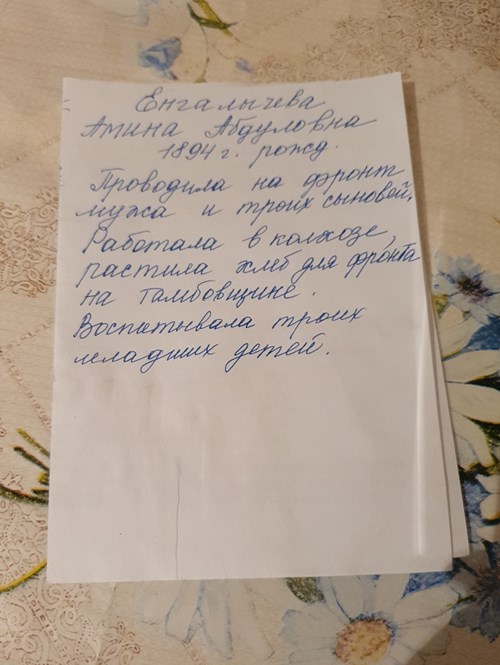 Енгалычева
Амина Абдуловна
1894 г. рожд.
Проводила на фронт
мужа и троих сыновей.
Работала в колхозе,
растила хлеб для фронта
на Тамбовщине.
Воспитывала троих
младших детей.